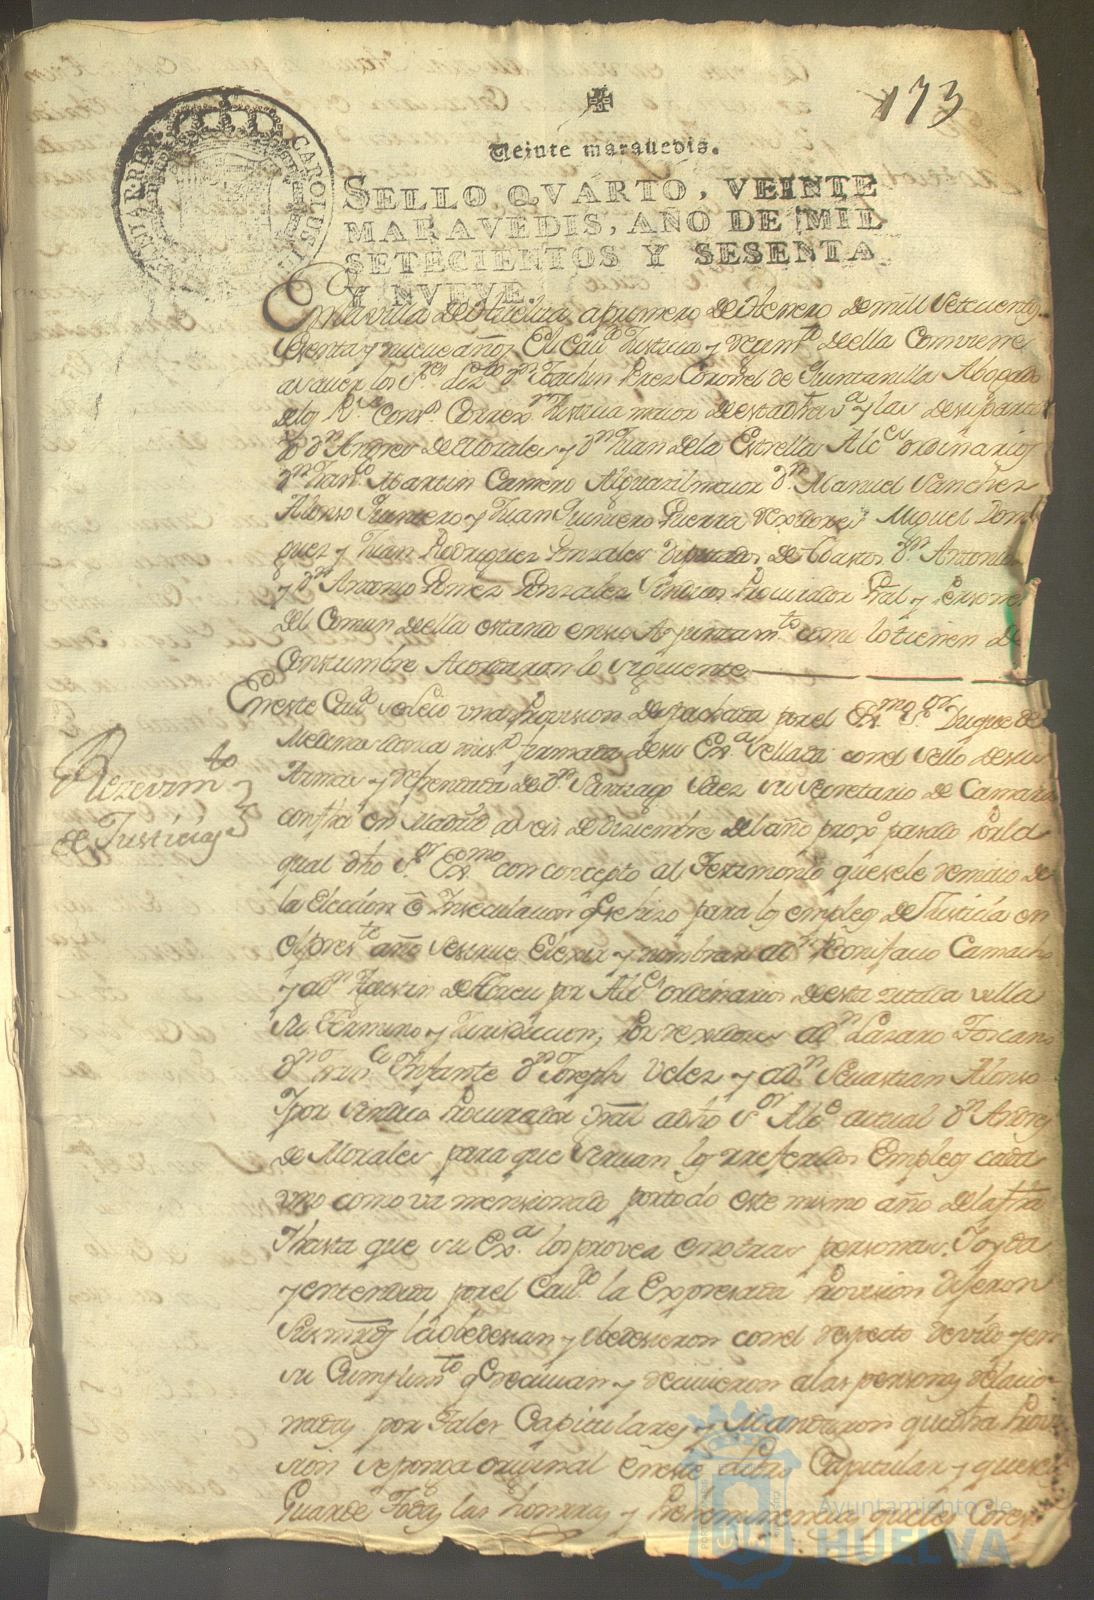 173
Veinte maravedis.
SELLO QVARTO, VEINTE
MARAVEDIS, AÑO DE MIL
SETECIENTOS Y SESENTA
Y NVEVE.
CAROLUS
En la villa de Huelva, a primero de Henero de mill setecientos
sesenta y nueve años El Cau.do Justicia y regim.to de ella Combiene
a sauer los S.res Liz.do d.n Joachin Perez Coronel de Quintanilla Abogado
de los R.s Cons.s Correx.r Justicia maior de esta dha v.a y las de su partido
d.n Andres de Morales y d.n Juan de la Estrella Alc.es ordinarios
d.n Fran.co Martin Camero Alguazil maior d.n Manuel Sanchez
Alonso Quintero y Juan Quintero Guerra rexidores Miguel Domin
guez y Juan Rodriguez Gonzales Diputados de Abastos d.n Antonio
y d.n Antonio Gomez Gonzales Sindicos Procurador Gral y Personero
del Comun de ella estando en su Ayuntam.to como lo tienen de
Constumbre Acordaron lo siguiente
Reçevim.to
de Justicias
En este Cau.do se leio una Provision despachada por el Ex.mo S.or Duque de
Medina Sidonia mi s.r firmada de su Ex.a sellada con el sello de sus
Armas y refrendada de d.n Santiago Saez su Secretario de Camara
con fha en Madrid a seis de Diziembre del año prox.o pasado Por la
qual dho S.or Ex.mo con concepto al Testimonio que se le remitio de
la Elección e Inseculacion q se hizo para los empleos de Justicia en
el pres.te año se sirue Elexir y nombrar a d.n Bonifacio Camacho
y a d.n Faustin de Abreu por Alc.es ordinarios de esta zitada villa
su Termino y Jurisdiccion; Por rexidores a d.n Lazaro Toscano
d.n Fran.co Infante d.n Joseph Velez y a d.n Sevastian Alonso
I por sindico Procurador gral a dho s.or Alc.e actual d.n Andres
de Morales para que siruan los referidos Empleos cada
uno como va mensionado por todo este mismo año de la fha
I hasta que su Ex.a los provea en otras personas. I oyda
y entendida por el Cau.do la Expresada Provision dijeron
sus mrds la obedesian y obedesieron con el respecto devido y en
su Cumplim.to q reciuian y reciuieron a las personas relacio
nadas por tales Capitulares y Mandaron que dha Provi
sion se ponga original en este Libro Capitular y que se
Guarde todas las honras y Preheminencias que les Corres
Ayuntamiento de
HUELVA